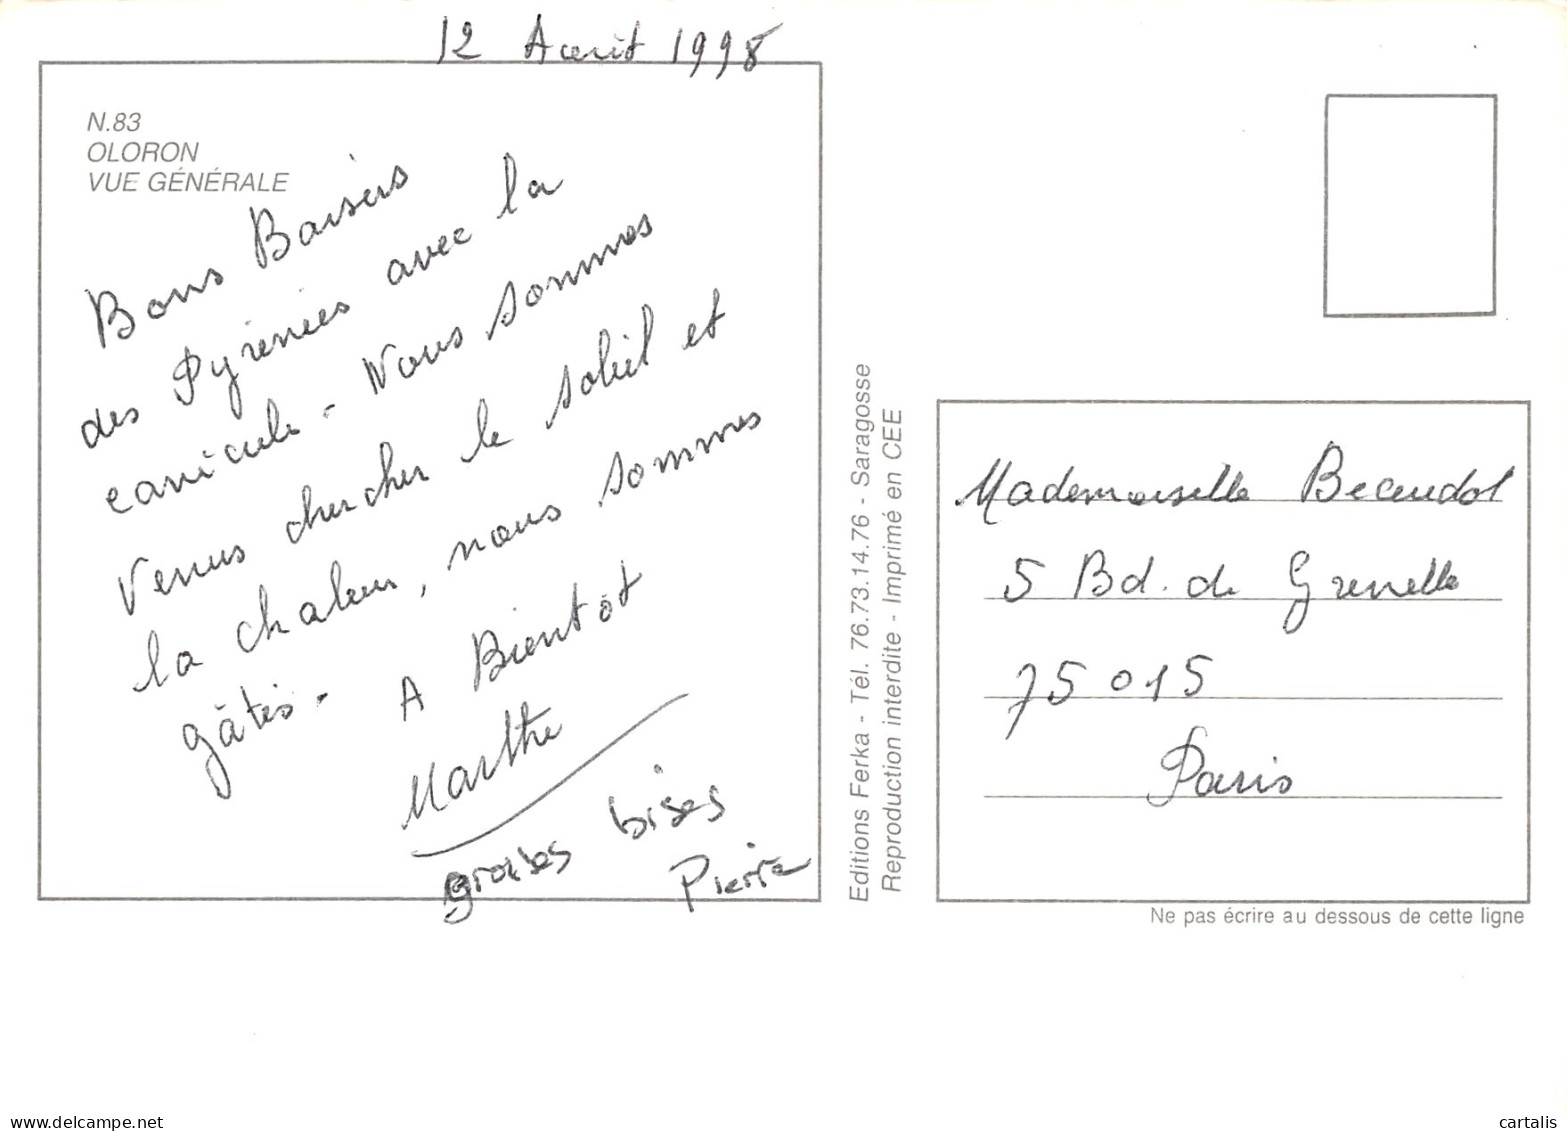 12 Août 1998
N.83
OLORON
VUE GÉNÉRALE
Bons Baisers
des Pyrénées avec la
canicule - Nous sommes
venus chercher le soleil et
la chaleur, nous sommes
gâtés - A Bientôt
Marthe
grosses bises
Pierre
Editions Ferka - Tél. 76.73.14.76 - Saragosse
Reproduction interdite - Imprimé en CEE
Mademoiselle
5 Bd. de Grenelle
75015
Paris
Ne pas écrire au dessous de cette ligne
www.delcampe.net
cartalis